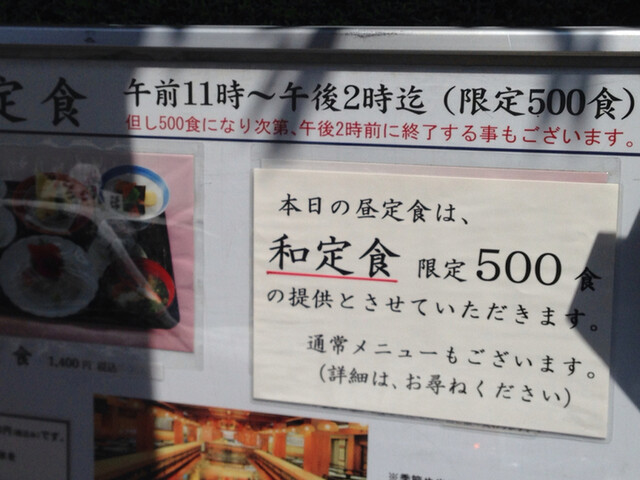 定食 午前11時～午後2時迄（限定500食）
但し500食になり次第、午後2時前に終了する事もございます。
本日の昼定食は、
和定食 限定500食
の提供とさせていただきます。
通常メニューもございます。
（詳細は、お尋ねください）
食 1,400円 税込
です。